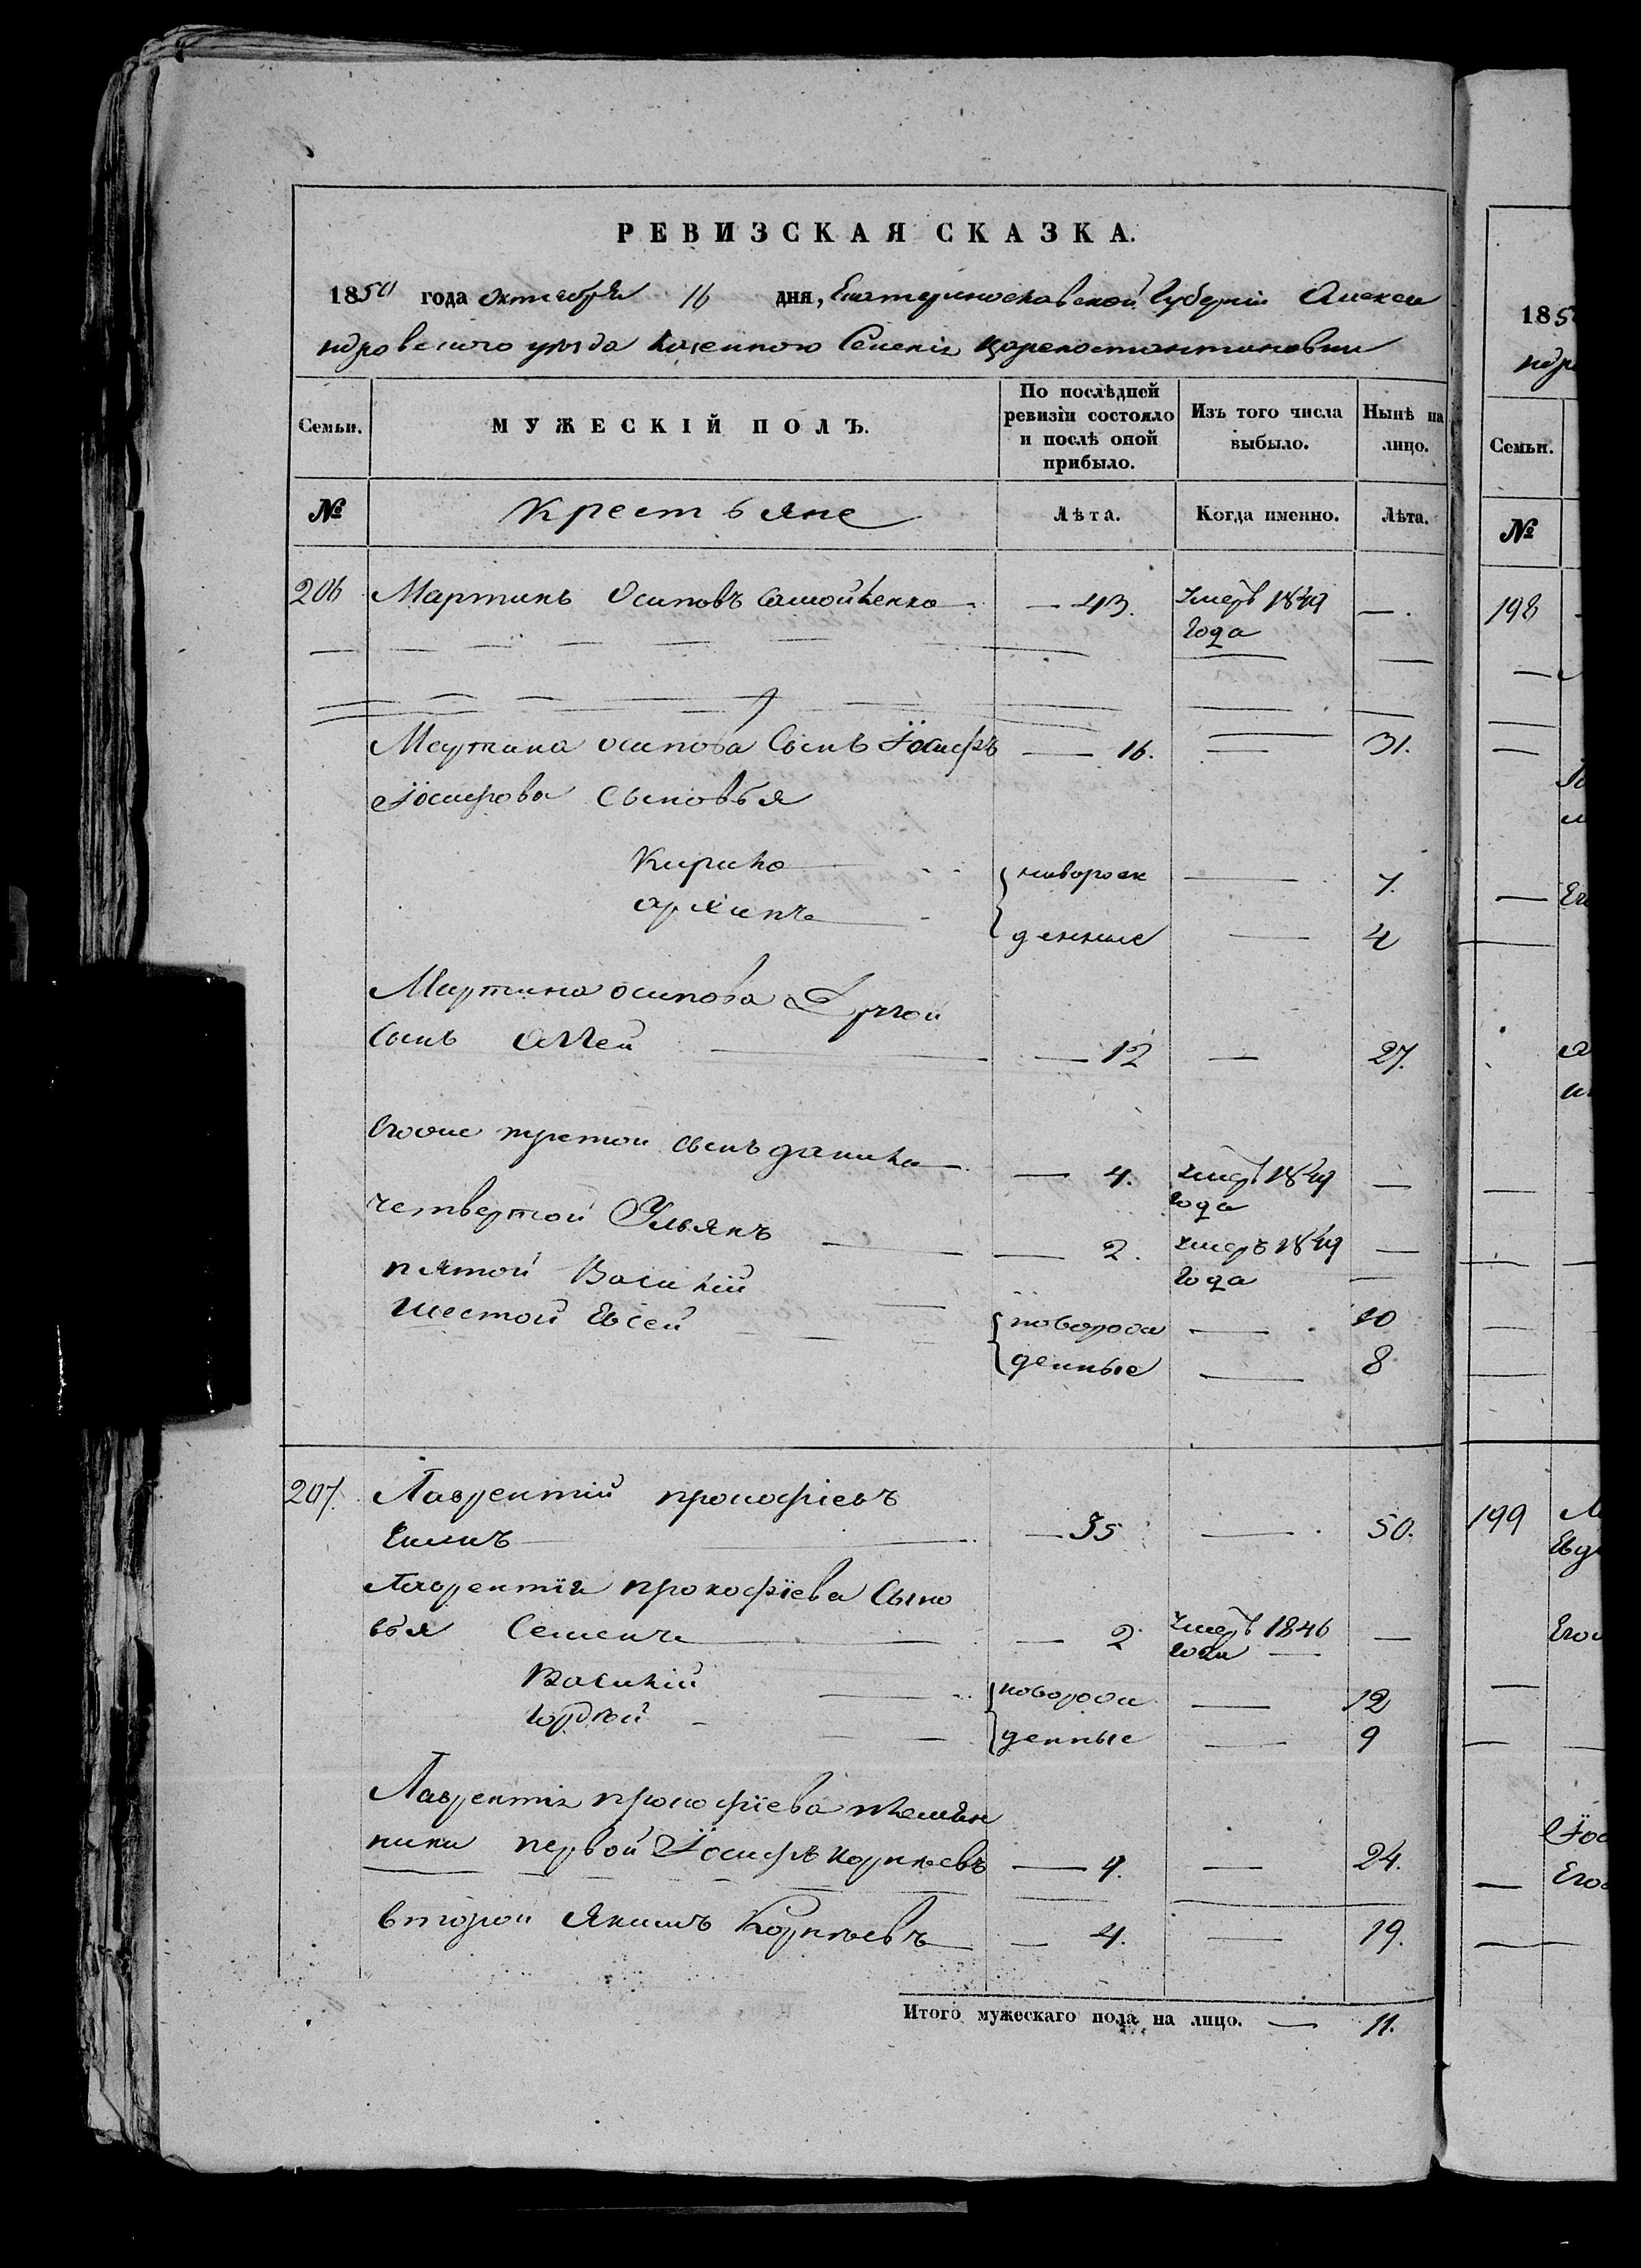 РЕВИЗСКАЯ СКАЗКА.
1850 года октября 16 дня, Екатеринославской Губерніи Алекса
ндровского уѣзда казенного Селенія Цареконстантиновки
Семьи. МУЖЕСКІЙ ПОЛЪ. По послѣдней ревизіи состояло и послѣ оной прибыло. Изъ того числа выбыло. Нынѣ на лицо.
№ Крестьяне Лѣта. Когда именно. Лѣта.
206 Мартинъ Осиповъ Самойленко — 43. Умеръ 1849 —
года
Мартина осипова Сынъ Іосифъ — 16. — 31.
Іосифова сыновья
Кирило { новорож — 7.
архипъ денные — 4
Мартина осипова Другой
сынъ — 12 — 27.
Егоже третой сынъ данила — 4. умеръ 1849 —
года
четвертой Ульянъ — 2. умеръ 1849 —
года
пятой Василій
шестой Евсей { новорож — 10
денные — 8
207. Лаврентій прокофіевъ
— 35 — 50.
Лаврентія прокофіева Сыно
вья Семенъ — 2 умеръ 1846 —
года
Василій { новорож — 12
Гордѣй денные — 9
Лаврентія прокофіева племян
ники первой Іосифъ корнѣевъ — 9. — 24.
второй Якимъ Корнѣевъ — 4. — 19.
Итого мужескаго пола на лицо. — 11.
185
ндр
Семьи.
№
198
199